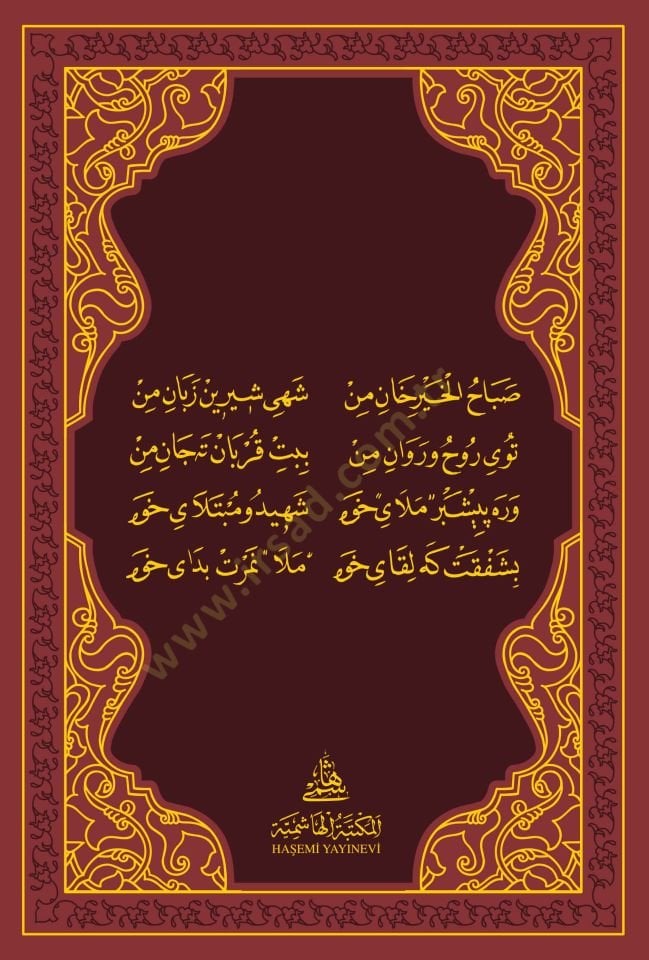 صَبَاحُ الْخَيْرْ خَانِ مِنْ شَهِى شِيرِينْ زَبَانِ مِنْ
تُوىِ رُوحُ و رَوَانِ مِنْ بِبِتْ قُرْبَانْ تَه جَانِ مِنْ
وَرَه پِيشْبَرْ "مَلَاىِ" خَوَ شَهِيدُ و مُبْتَلَاىِ خَوَ
بِشَفْقَتْ كَه لِقَاىِ خَوَ "مَلَا" نَمَرْتْ بِدَاىِ خَوَ
هاشمي
المكتبة الهاشمية
HAŞEMİ YAYINEVİ